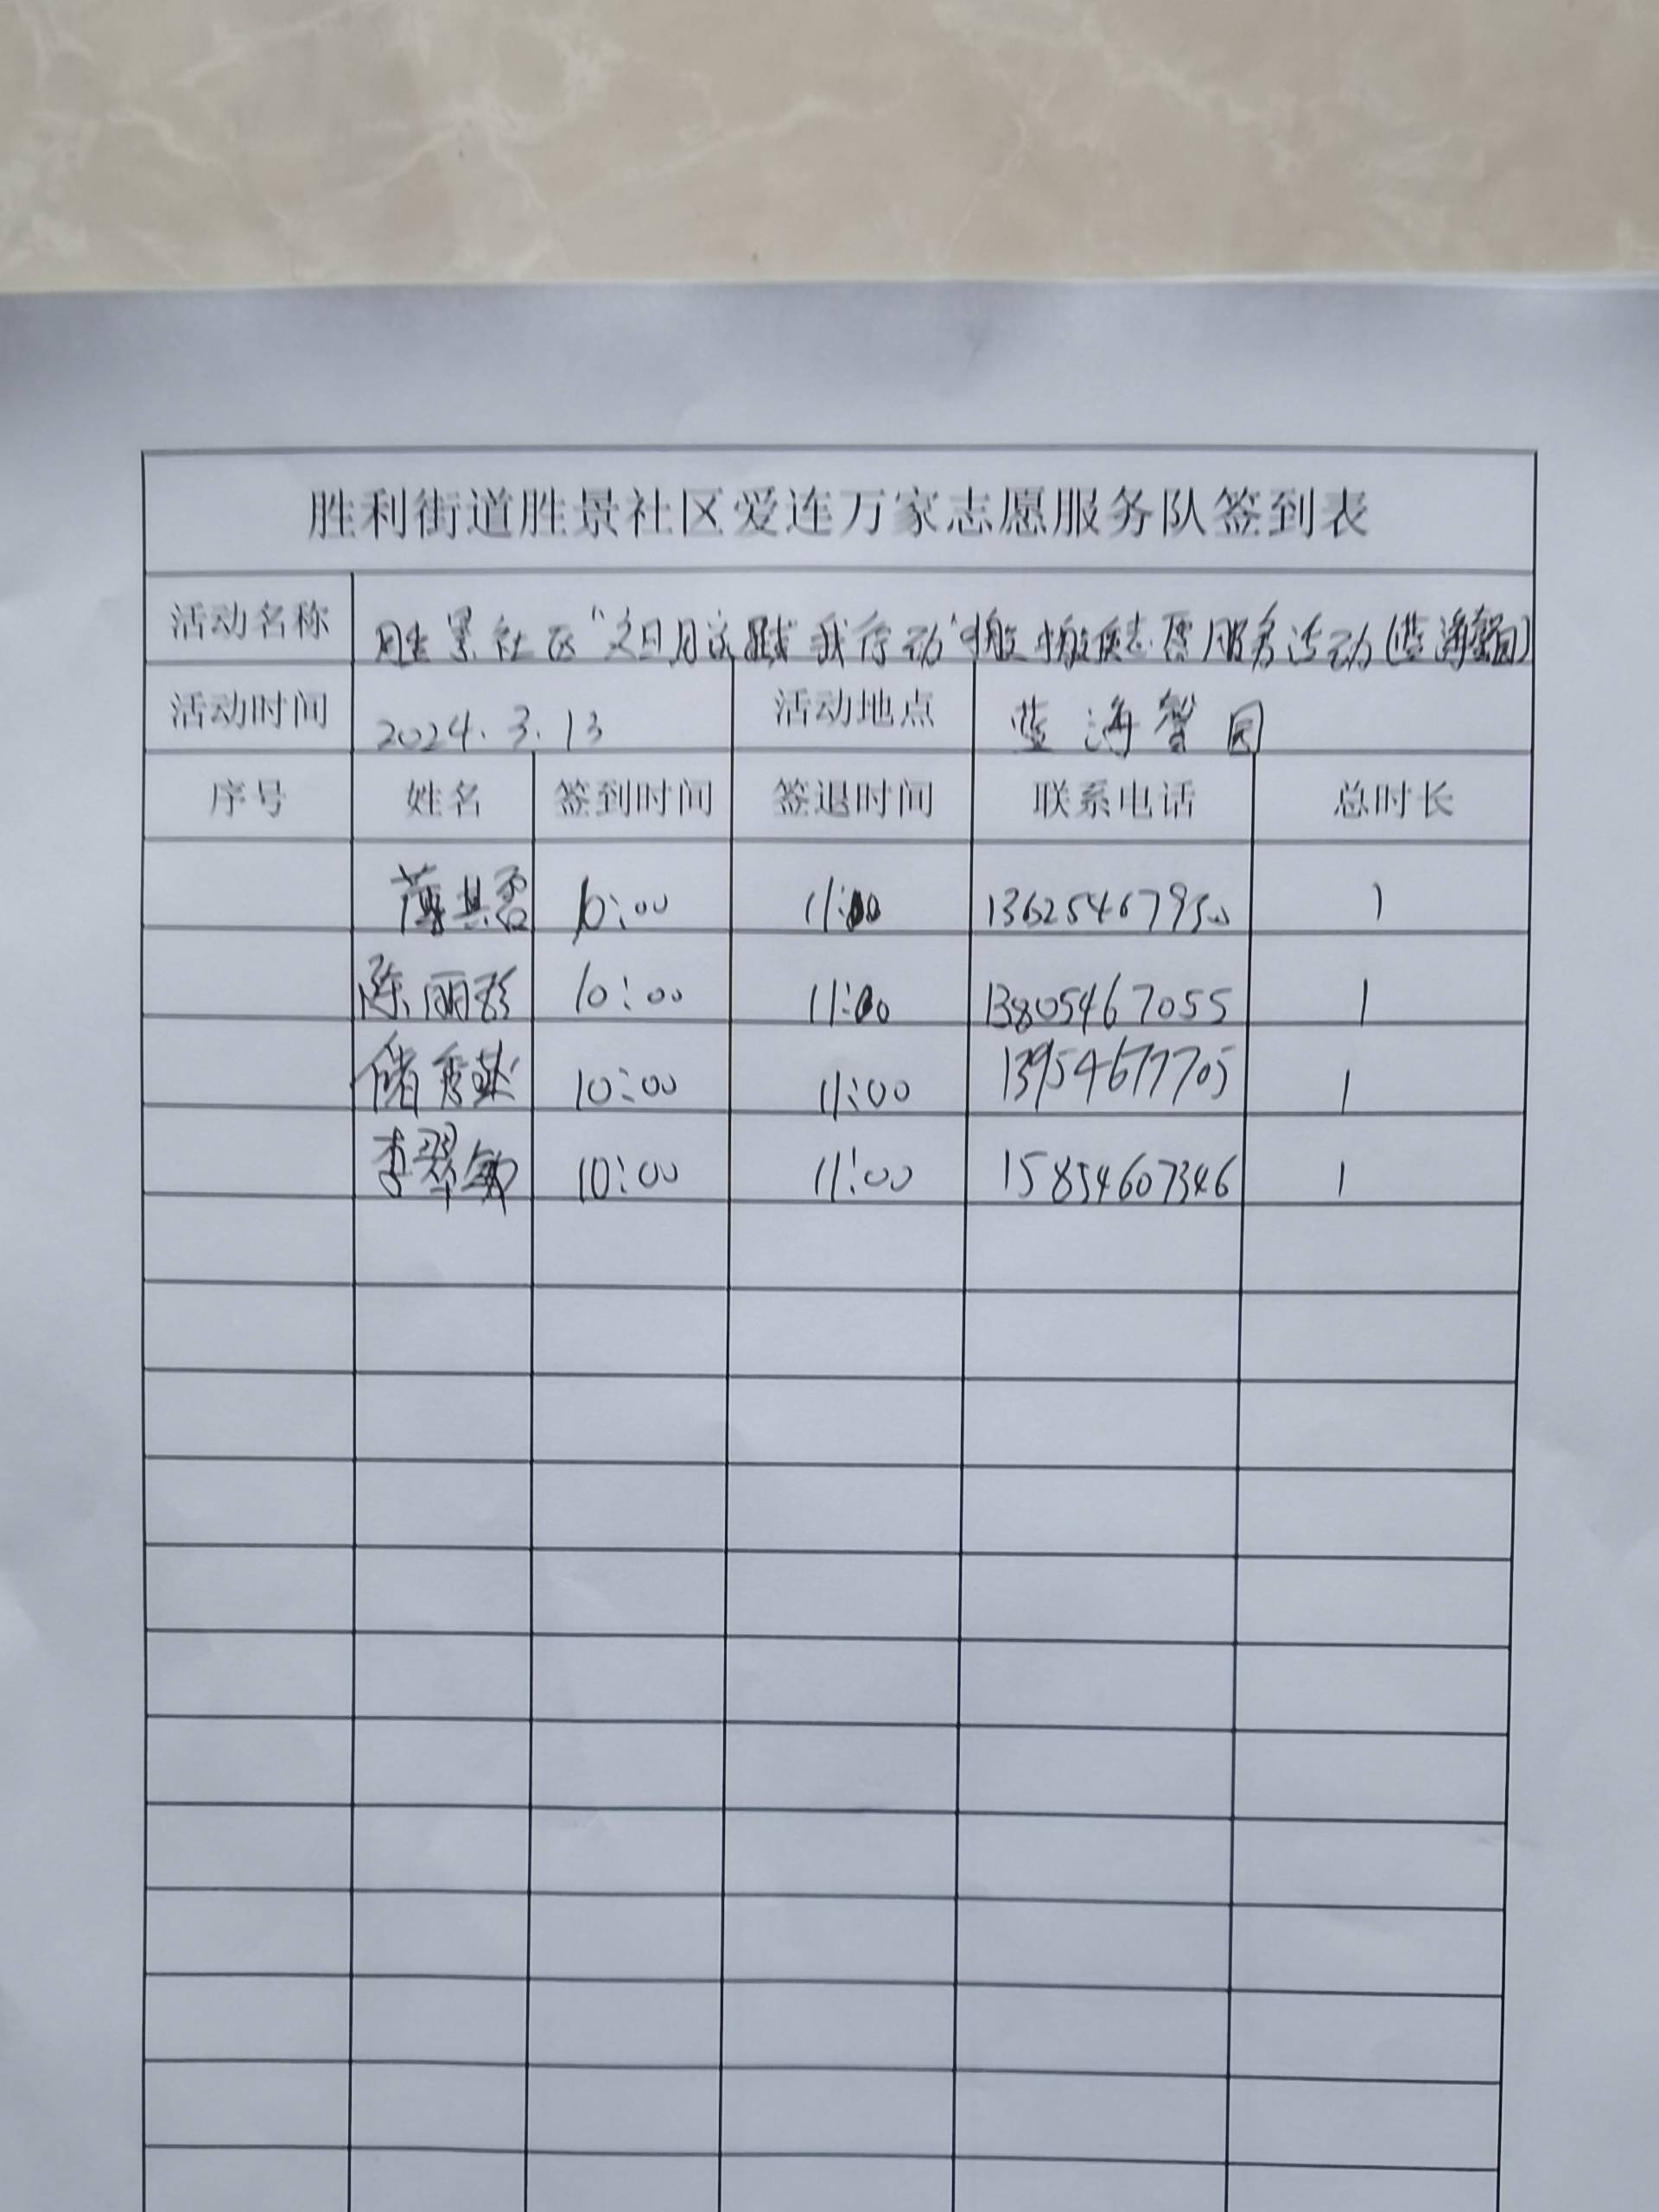 胜利街道胜景社区爱连万家志愿服务队签到表
活动名称 胜景社区“文明实践我行动”搬搬侠志愿服务活动(蓝海馨园)
活动时间 2024.3.13 活动地点 蓝海馨园
序号 姓名 签到时间 签退时间 联系电话 总时长
薄其雪 10:00 11:00 13625467950 1
陈丽珍 10:00 11:00 13805467055 1
储秀燕 10:00 11:00 13954677705 1
李翠敏 10:00 11:00 15854607346 1